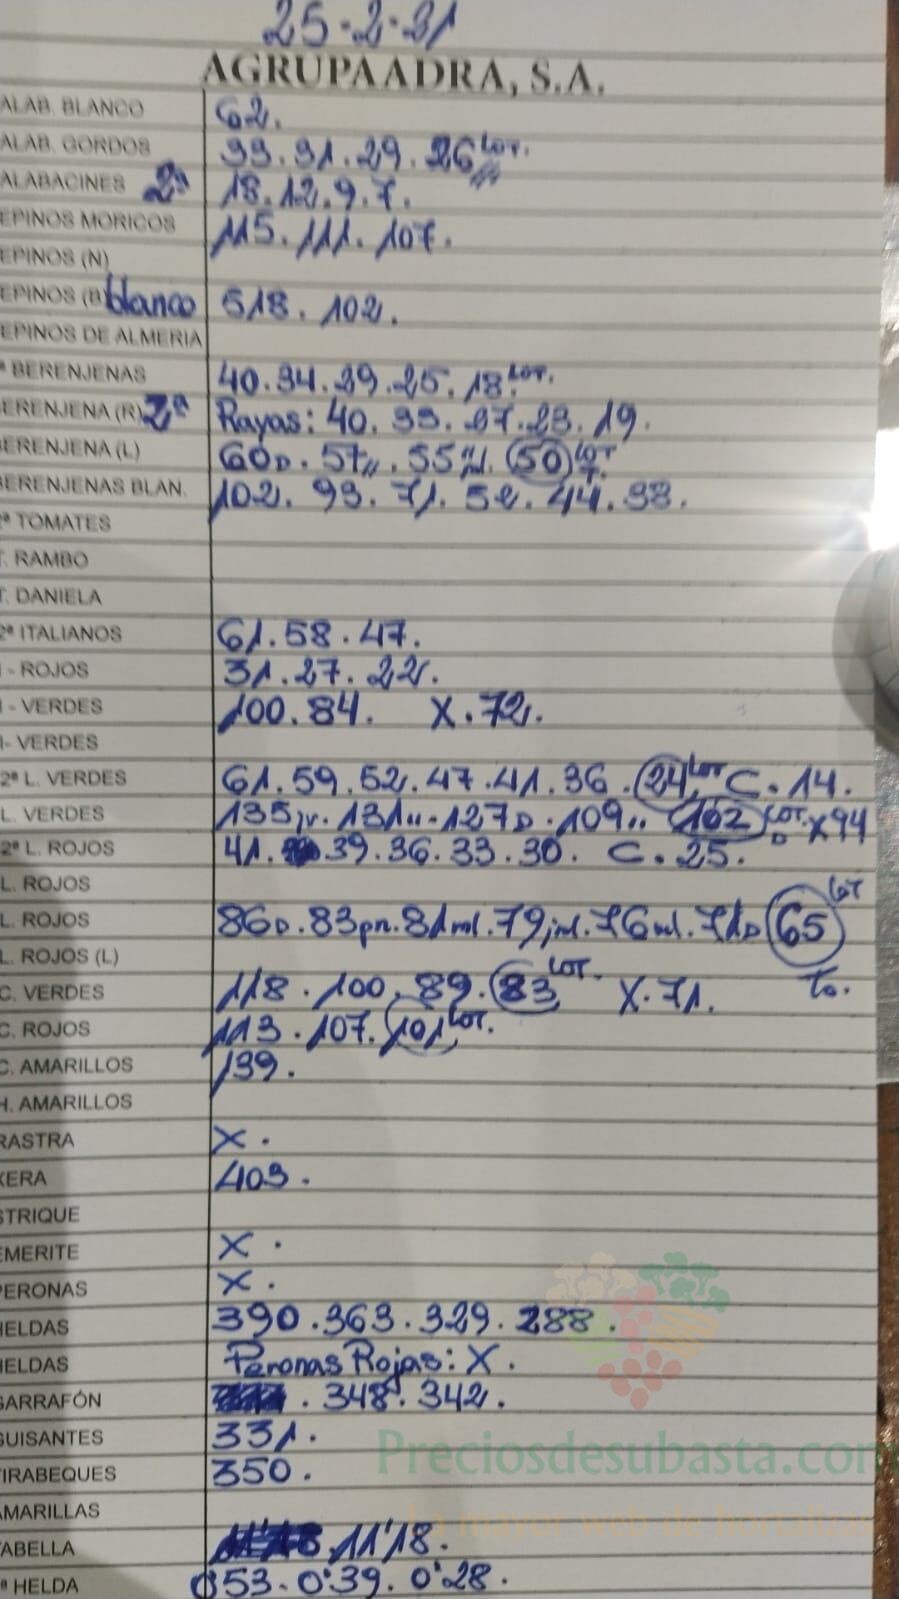 25-2-21
AGRUPAADRA, S.A.
ALAB. BLANCO 62.
ALAB. GORDOS 33.31.29.26 LOT.
ALABACINES 2ª 18.12.9.7.
EPINOS MORICOS 115.111.107.
EPINOS (N)
EPINOS (B) blanco 518.102.
EPINOS DE ALMERIA
ª BERENJENAS 40.34.29.25.18 LOT.
ERENJENA (R) 2ª Rayas: 40.33.27.23.19.
ERENJENA (L) 60D.57,,.55 50 LOT
ERENJENAS BLAN. 102.93.71.52.44.38.
2ª TOMATES
T. RAMBO
T. DANIELA
2ª ITALIANOS 61.58.47.
I - ROJOS 31.27.22.
I - VERDES 100.84. X.72.
I- VERDES
2ª L. VERDES 61.59.52.47.41.36.24 LOT C.14.
L. VERDES 135jv.131,,.127D.109,, 102 LOT. D X94
2ª L. ROJOS 41. 39.36.33.30. C.25.
L. ROJOS
L. ROJOS 86D.83pn.81ml.79jml.76ml.71D 65 LOT To.
L. ROJOS (L)
C. VERDES 118.100.89.83 LOT. X.71.
C. ROJOS 113.107.101 LOT.
C. AMARILLOS 139.
H. AMARILLOS
RASTRA X.
XERA 403.
STRIQUE
EMERITE X.
PERONAS X.
HELDAS 390.363.329.288.
HELDAS Peronas Rojas: X.
GARRAFÓN .348.342.
GUISANTES 331.
TIRABEQUES 350.
AMARILLAS
ABELLA 11'18.
ª HELDA 0'53.0'39.0'28.
Preciosdesubasta.com
La mayor web de hortalizas